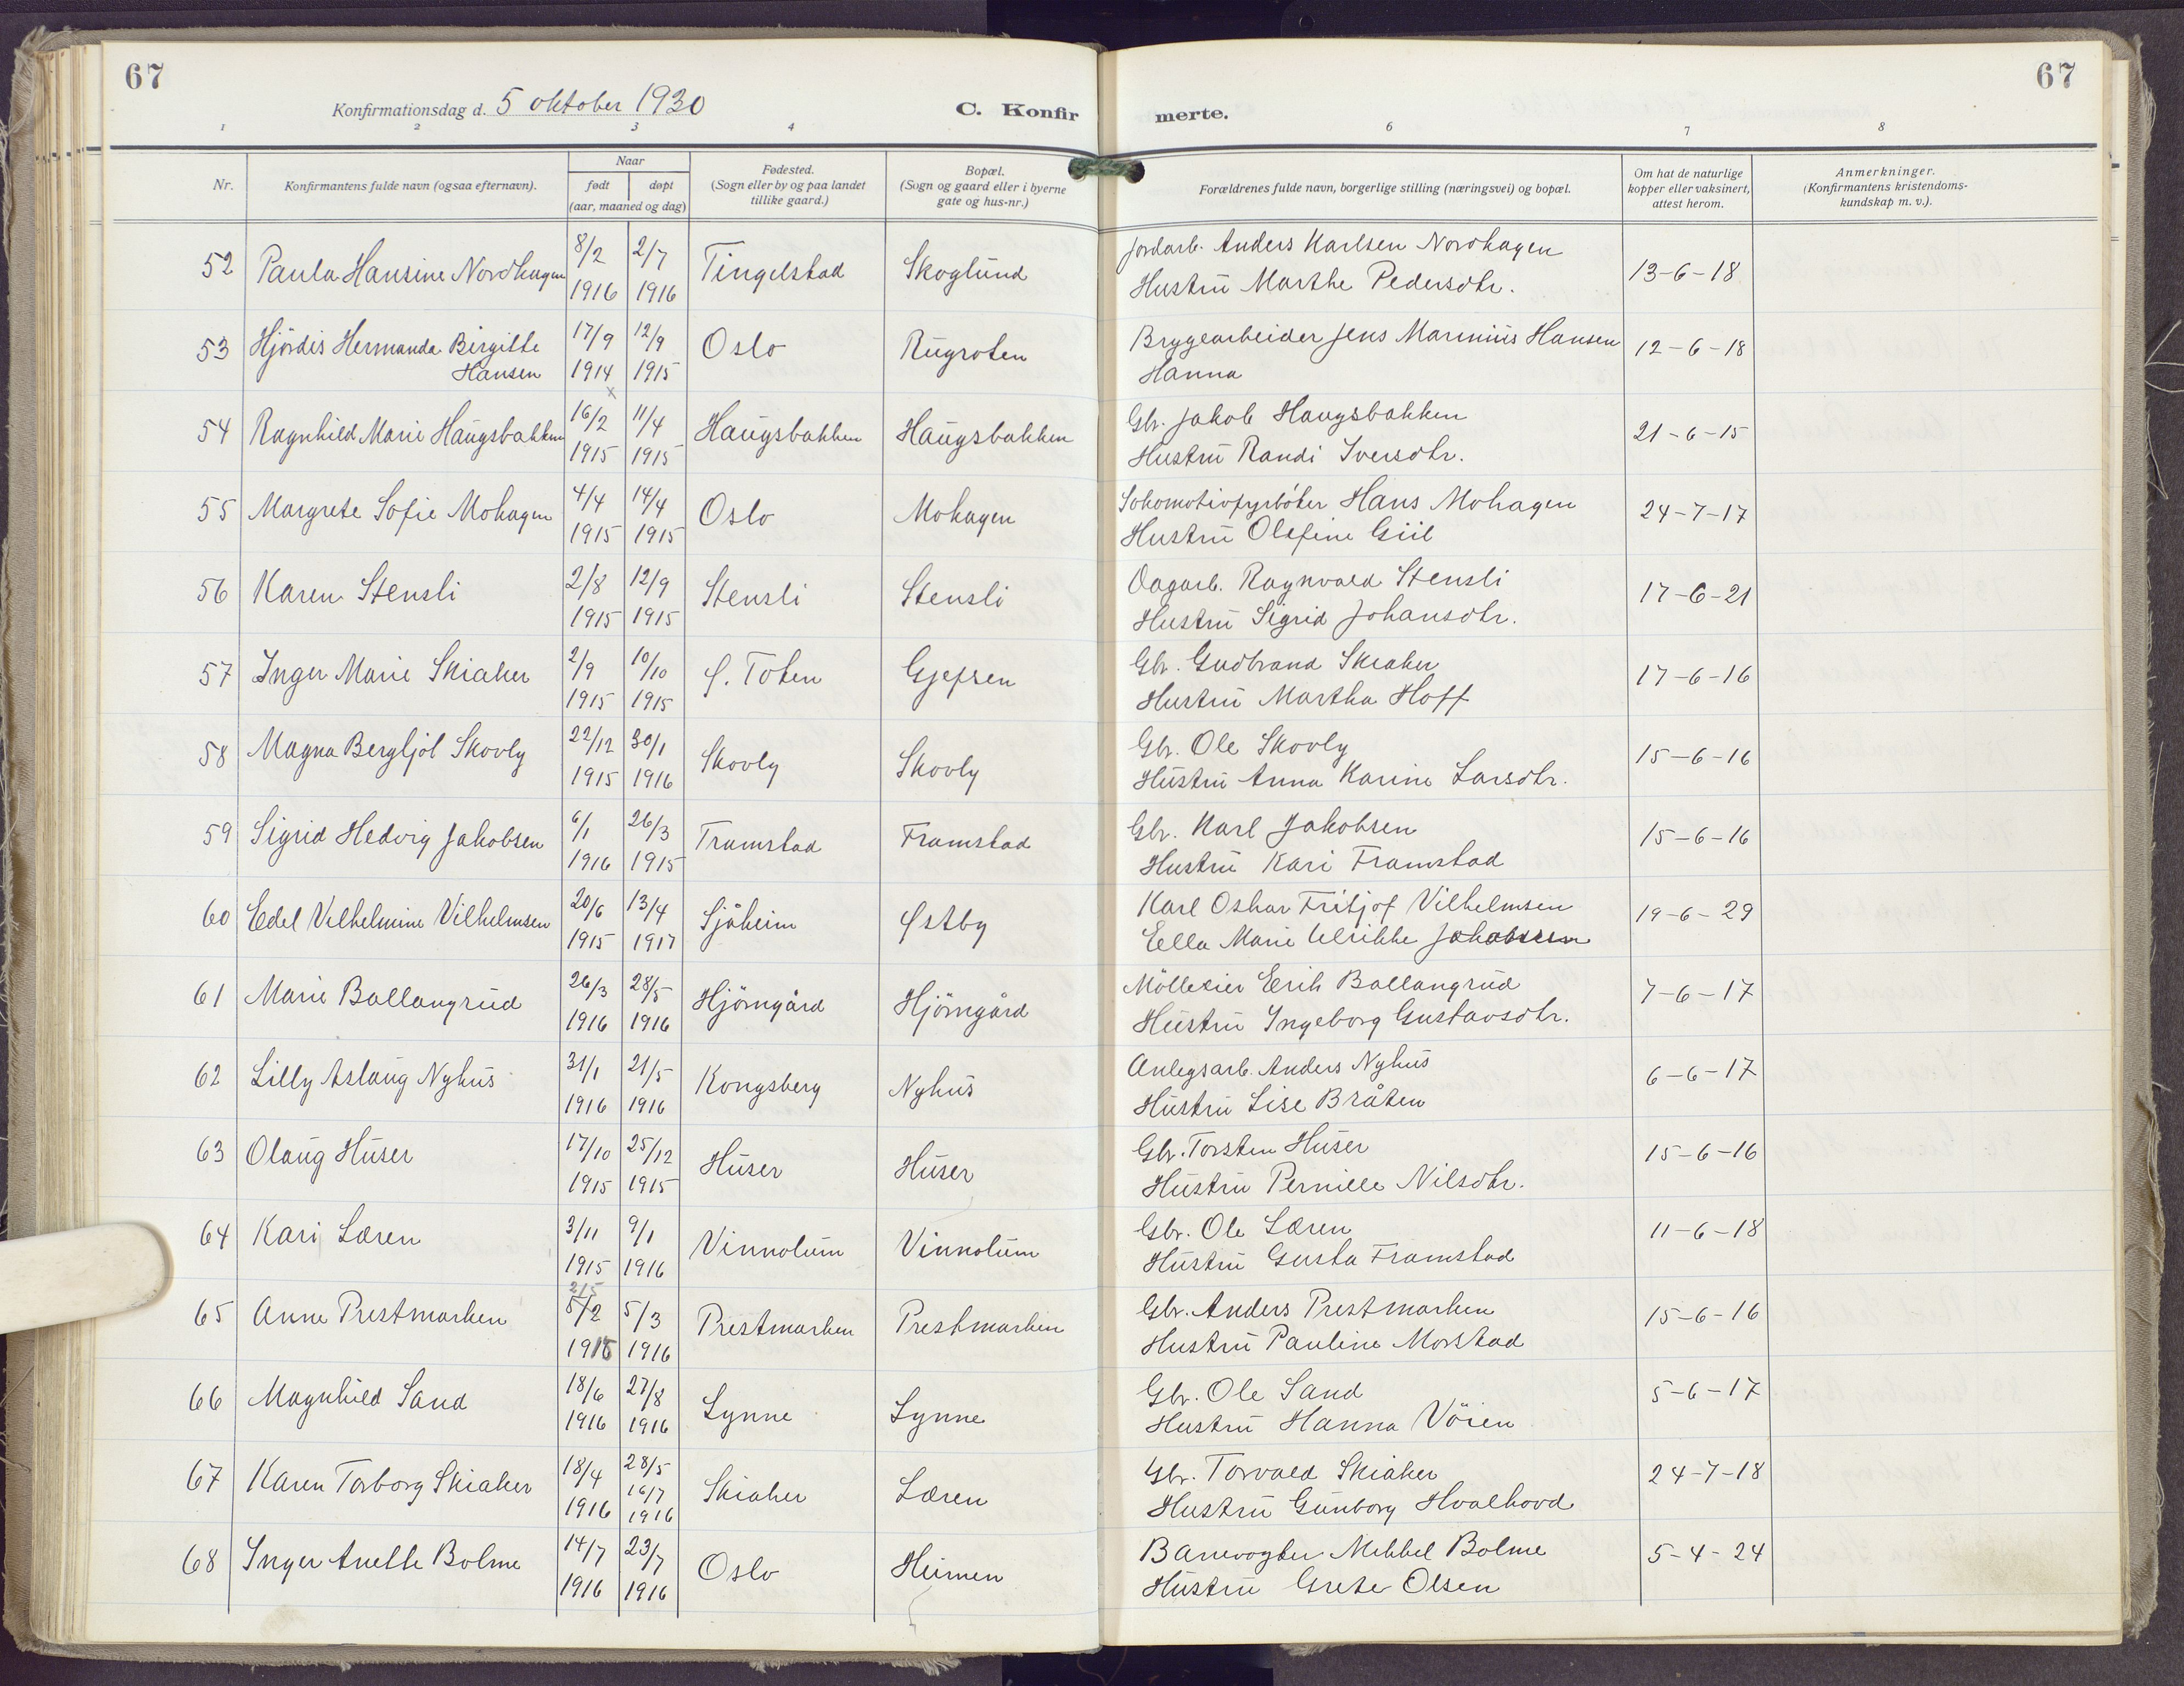 67
67
Konfirmationsdag d. 5 oktober 1930
C. Konfir
merte.
1 2 3 4 6 7 8
Nr.
Konfirmantens fulde navn (ogsaa efternavn).
Naar
født døpt
(aar, maaned og dag)
Fødested.
(Sogn eller by og paa landet
tillike gaard.)
Bopæl.
(Sogn og gaard eller i byerne
gate og hus-nr.)
Forældrenes fulde navn, borgerlige stilling (næringsvei) og bopæl.
Om hat de naturlige
kopper eller vaksinert,
attest herom.
Anmerkninger.
(Konfirmantens kristendoms-
kundskap m. v.).
52 Paula Hansine Nordhagen 8/2 1916 2/7 1916 Tingelstad Skoglund
Jordarb. Anders Karlsen Nordhagen
Hustru Marthe Pedersdtr.
13-6-18
53 Hjördis Hermanda Birgitte
Hansen 17/9 1914 12/9 1915 Oslo Rugroten
Brygearbeider Jens Marinius Hansen
Hanna
12-6-18
54 Ragnhild Marie Haugsbakken 16/2 1915 11/4 1915 Haugsbakken Haugsbakken
Gbr. Jakob Haugsbakken
Hustru Randi Iversdtr.
21-6-15
55 Margrete Sofie Mohagen 4/4 1915 14/4 1915 Oslo Mohagen
Lokomotivfyrböter Hans Mohagen
Hustru Olefine Giil
24-7-17
56 Karen Stensli 2/8 1915 12/9 1915 Stensli Stensli
Dagarb. Ragnvald Stensli
Hustru Sigrid Johansdtr.
17-6-21
57 Inger Marie Skiaker 2/9 1915 10/10 1915 Ø. Toten Gjefsen
Gbr. Gudbrand Skiaker
Hustru Martha Hoff
17-6-16
58 Magna Bergljot Skovly 22/12 1915 30/1 1916 Skovly Skovly
Gbr. Ole Skovly
Hustru Anna Karine Larsdtr.
15-6-16
59 Sigrid Hedvig Jakobsen 6/1 1916 26/3 1915 Framstad Framstad
Gbr. Karl Jakobsen
Hustru Kari Framstad
15-6-16
60 Edel Vilhelmine Vilhelmsen 20/6 1915 13/4 1917 Sjåheim Østby
Karl Oskar Fritjof Vilhelmsen
Ella Marie Ulrikke Jakobsen
19-6-29
61 Marie Ballangrud 26/3 1916 28/5 1916 Hjörngård Hjörngård
Mölleeier Erik Ballangrud
Hustru Ingeborg Gustavsdtr.
7-6-17
62 Lilly Aslaug Nyhus 31/1 1916 21/5 1916 Kongsberg Nyhus
Anlegsarb. Anders Nyhus
Hustru Lise Bråten
6-6-17
63 Olaug Huser 17/10 1915 25/12 1915 Huser Huser
Gbr. Torsten Huser
Hustru Pernille Nilsdtr.
15-6-16
64 Kari Læren 3/11 1915 9/1 1916 Vinnolum Vinnolum
Gbr. Ole Læren
Hustru Gusta Framstad
11-6-18
65 Anne Prestmarken 5/2 5/3 1916 Prestmarken Prestmarken
Gbr. Anders Prestmarken
Hustru Pauline Morstad
15-6-16
66 Magnhild Sand 18/6 1916 27/8 1916 Lynne Lynne
Gbr. Ole Sand
Hustru Hanna Vöien
5-6-17
67 Karen Torborg Skiaker 18/4 1916 28/5 16/7 1916 Skiaker Læren
Gbr. Torvald Skiaker
Hustru Gunborg Hvalhovd
24-7-18
68 Inger Anette Bolme 14/7 1916 23/7 1916 Oslo Heimen
Banevogter Mikkel Bolme
Hustru Grete Olsen
5-4-24